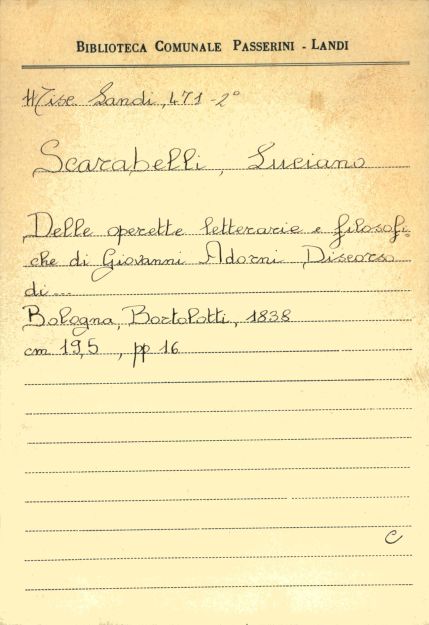 BIBLIOTECA COMUNALE PASSERINI - LANDI
Misc. Landi, 471-2°
Scarabelli, Luciano
Delle operette letterarie e filosofi-
che di Giovanni Adorni Discorso
di...
Bologna, Bortolotti, 1838
cm 19,5 , pp 16
C